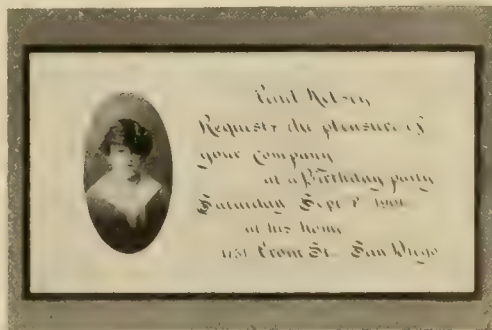 Paul
Requests the pleasure of
your Company
at a Birthday party
Saturday Sept
at his home
Front St. San Diego